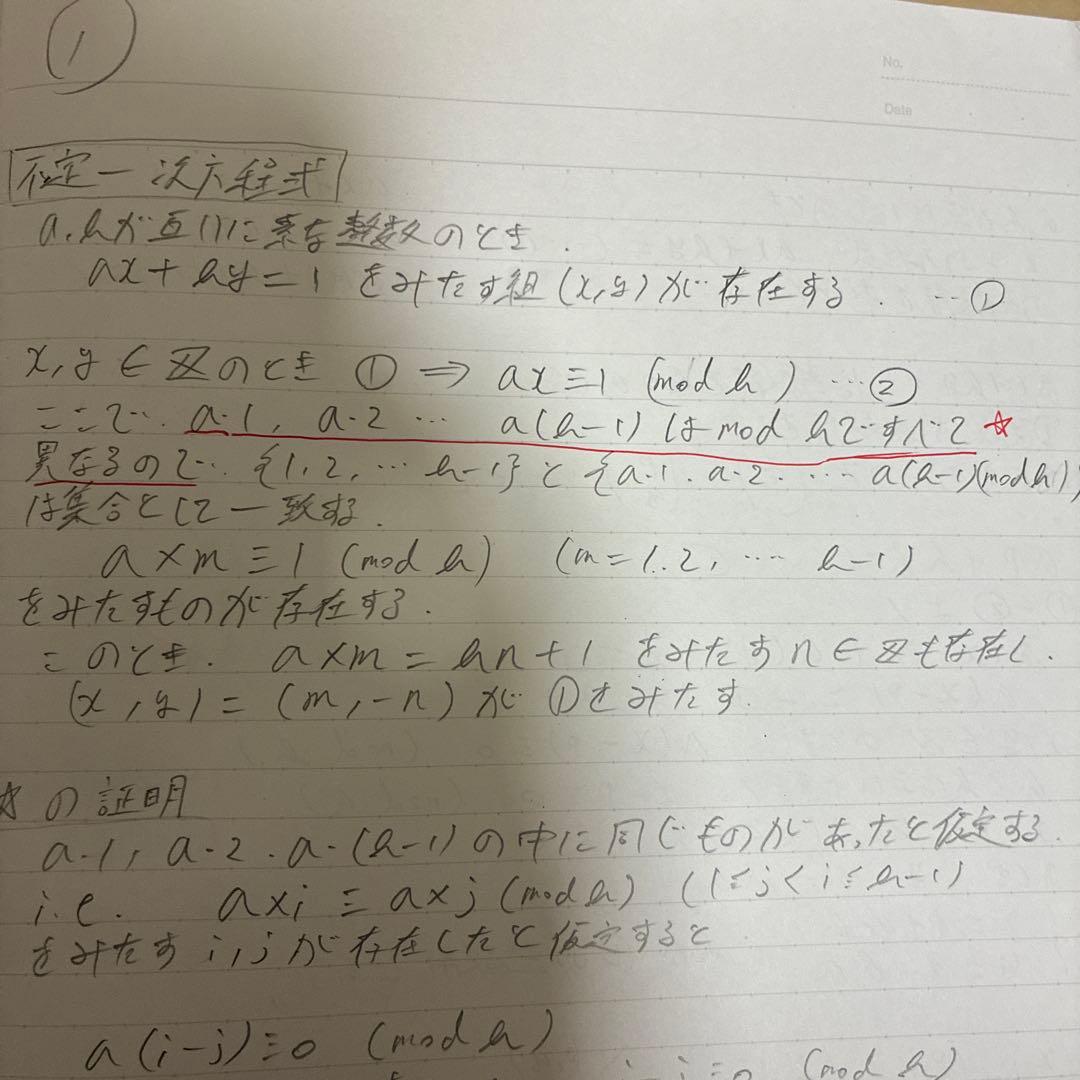 ①
No.
Date
不定一次方程式
a.bが互いに素な整数のとき.
ax+by=1 をみたす組(x,y)が存在する. …①
x,y∈ℤのとき ① ⇒ ax≡1 (mod b) …②
ここで. a・1, a・2 … a(b-1) は mod bですべて ☆
異なるので. {1,2,… b-1}と{a・1.a・2.… a(b-1)(mod b)}
は集合として一致する.
a×m≡1 (mod b) (m=1.2,… b-1)
をみたすものが存在する.
このとき. a×m=bn+1 をみたすn∈ℤも存在し.
(x,y)=(m,-n)が①をみたす.
☆の証明
a・1, a・2.a・(b-1)の中に同じものがあったと仮定する.
i.e. a×i≡a×j (mod b) (1≤j<i≤b-1)
をみたすi,jが存在したと仮定すると
a(i-j)≡0 (mod b)
i-j≡0 (mod b)